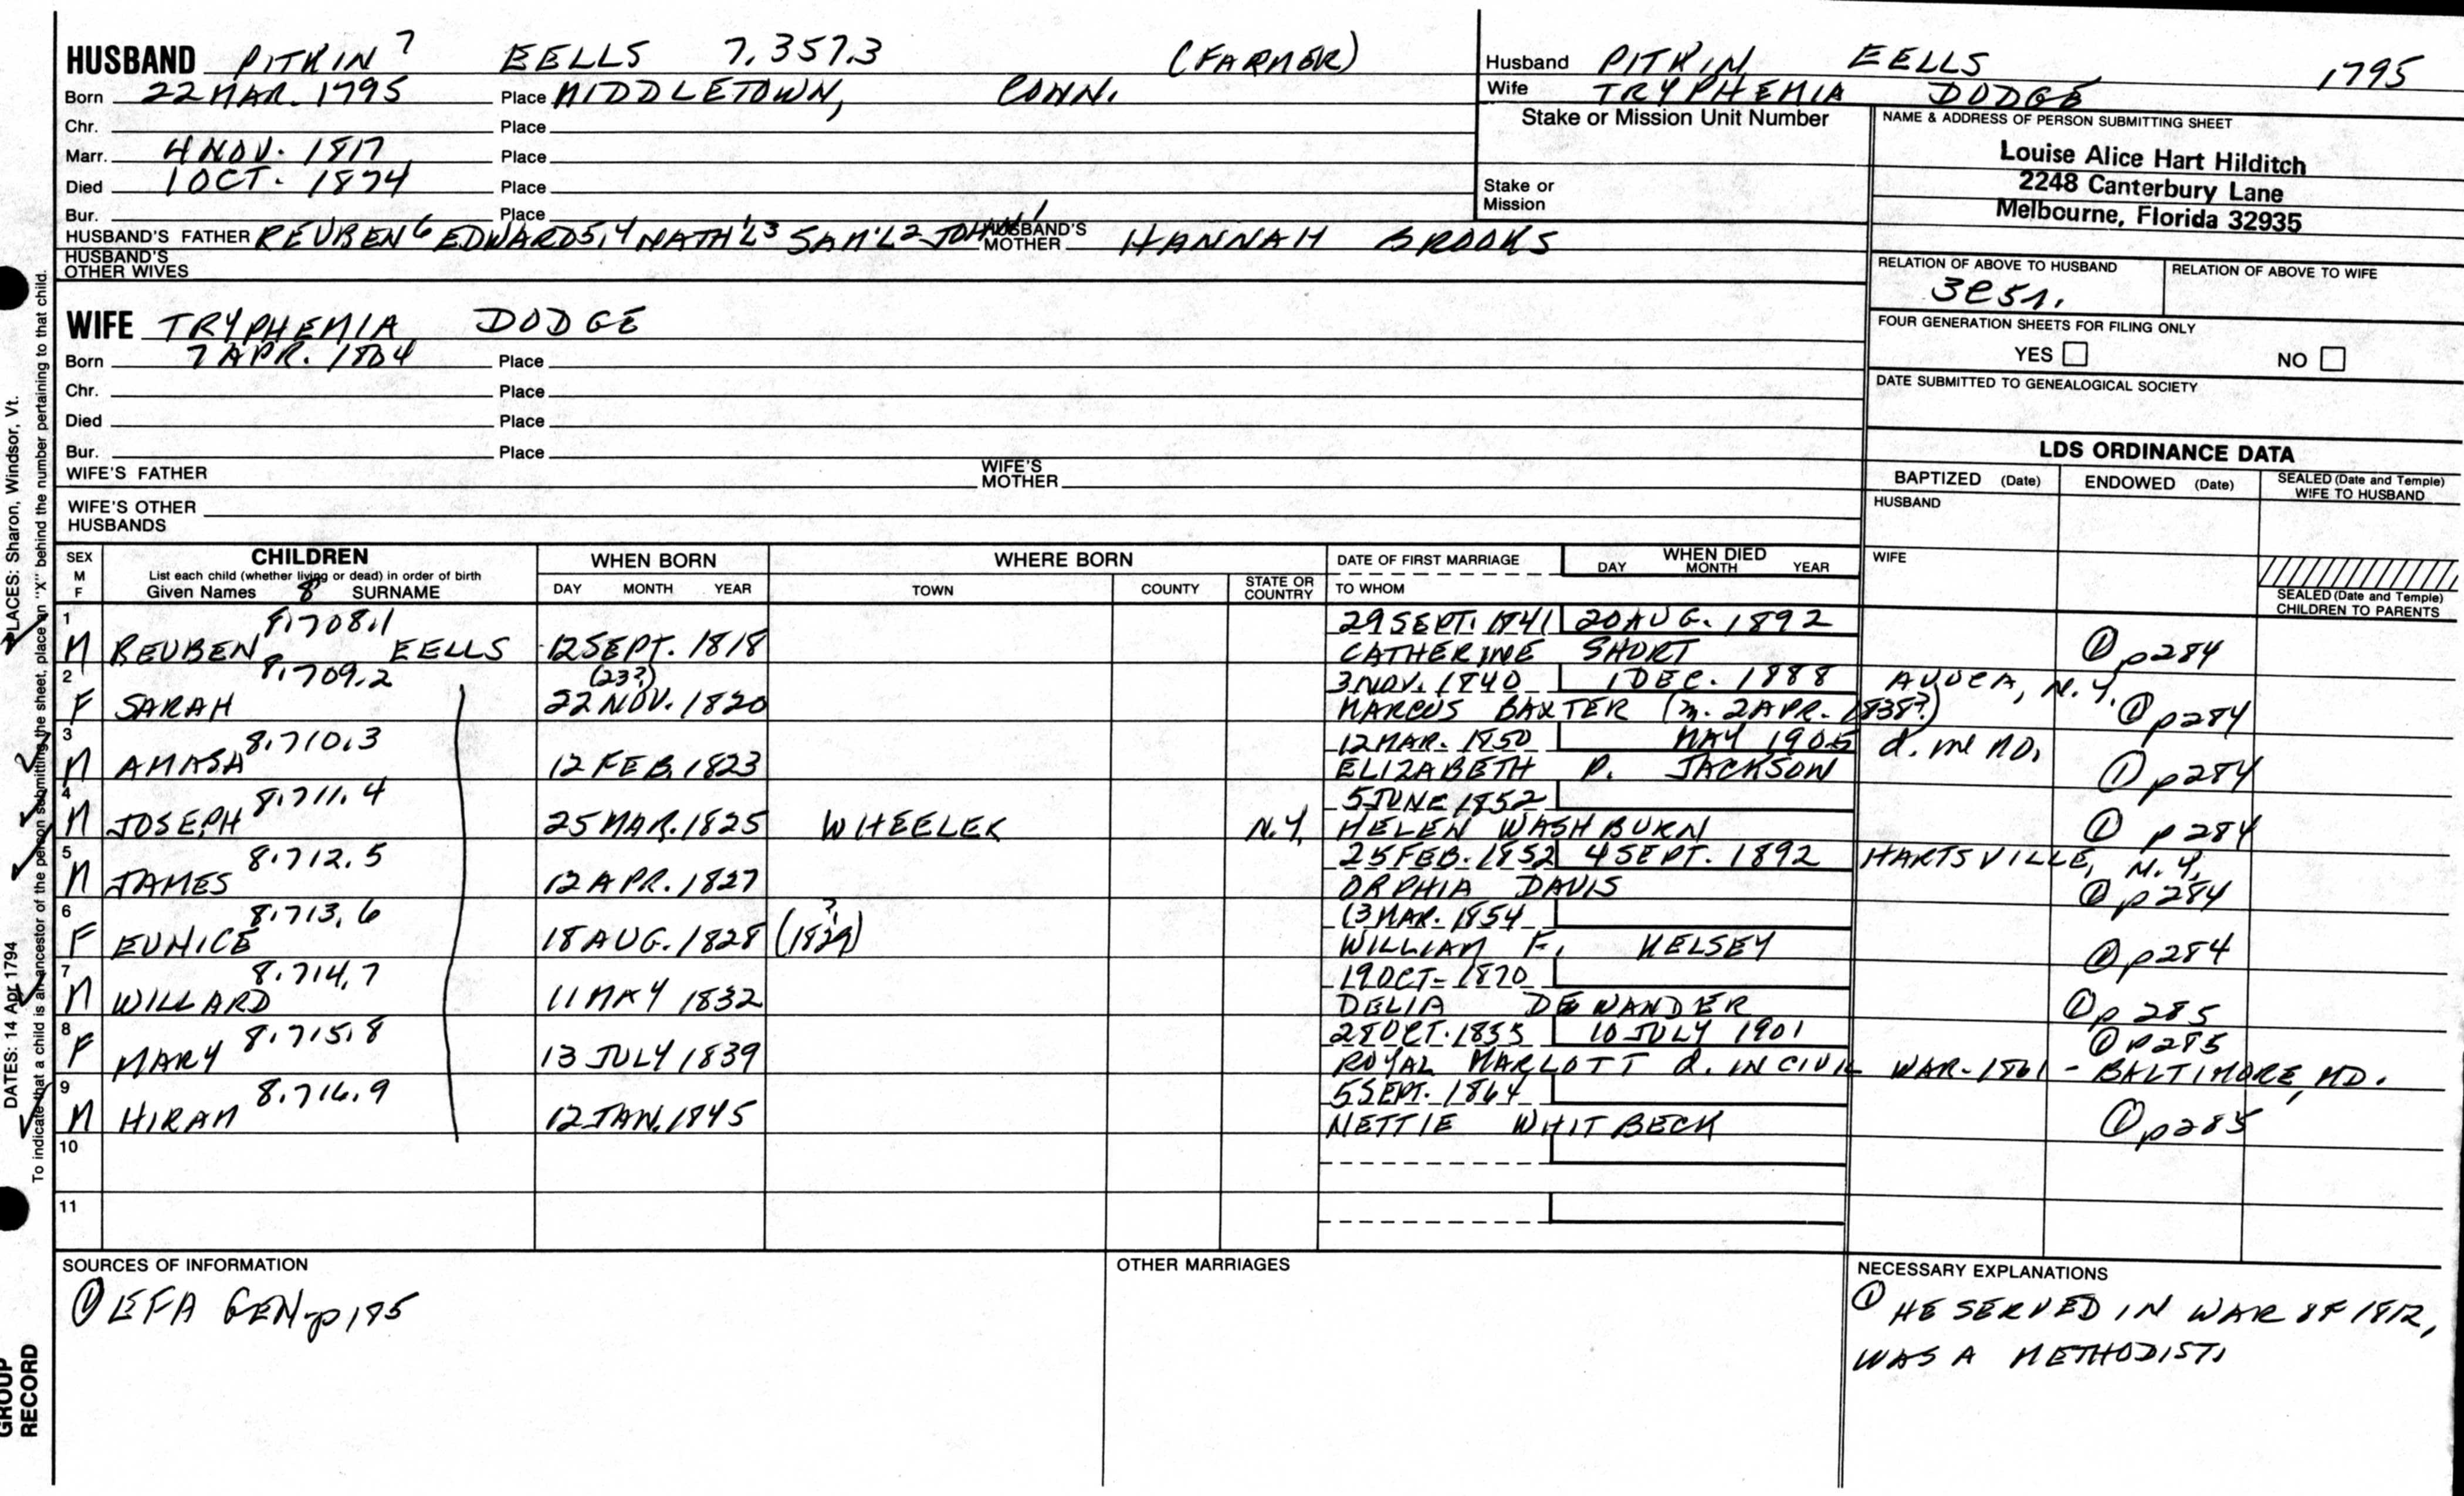 HUSBAND PITKIN 7 EELLS 7.357.3 (FARMER)
Born 22 MAR. 1795 Place MIDDLETOWN, CONN.
Chr. Place
Marr. 4 NOV. 1817 Place
Died 1 OCT. 1874 Place
Bur. Place
HUSBAND'S FATHER REUBEN 6 EDWARD 5,4 NATH'L 3 SAM'L 2 JOHN 1 HUSBAND'S MOTHER HANNAH BROOKS
HUSBAND'S OTHER WIVES
Husband PITKIN EELLS 1795
Wife TRYPHEMIA DODGE
Stake or Mission Unit Number
Stake or Mission
NAME & ADDRESS OF PERSON SUBMITTING SHEET
Louise Alice Hart Hilditch
2248 Canterbury Lane
Melbourne, Florida 32935
RELATION OF ABOVE TO HUSBAND RELATION OF ABOVE TO WIFE
FOUR GENERATION SHEETS FOR FILING ONLY
YES NO
DATE SUBMITTED TO GENEALOGICAL SOCIETY
WIFE TRYPHEMIA DODGE
Born 7 APR. 1804 Place
Chr. Place
Died Place
Bur. Place
WIFE'S FATHER WIFE'S MOTHER
WIFE'S OTHER HUSBANDS
LDS ORDINANCE DATA
BAPTIZED (Date) ENDOWED (Date) SEALED (Date and Temple) WIFE TO HUSBAND
HUSBAND
WIFE
SEALED (Date and Temple) CHILDREN TO PARENTS
SEX M F
CHILDREN
List each child (whether living or dead) in order of birth
Given Names 8 SURNAME
WHEN BORN
DAY MONTH YEAR
WHERE BORN
TOWN COUNTY STATE OR COUNTRY
DATE OF FIRST MARRIAGE
TO WHOM
WHEN DIED
DAY MONTH YEAR
1 8.708.1 29 SEPT. 1841 20 AUG. 1892
M REUBEN EELLS 12 SEPT. 1818 CATHERINE SHORT ① p284
2 8.709.2 (23?) 3 NOV. 1840 1 DEC. 1888 AVOCA, N.Y.
F SARAH 22 NOV. 1820 MARCUS BAXTER (m. 2 APR. 1838?) ① p284
3 8.710.3 12 MAR. 1850 MAY 1905 d. in MD.
M AMASA 12 FEB. 1823 ELIZABETH P. JACKSON ① p284
4 8.711.4 5 JUNE 1852
M JOSEPH 25 MAR. 1825 WHEELER N.Y. HELEN WASHBURN ① p284
5 8.712.5 25 FEB. 1852 4 SEPT. 1892 HARTSVILLE, N.Y.
M JAMES 12 APR. 1827 ORPHIA DAVIS ① p284
6 8.713.6 13 MAR. 1854
F EUNICE 18 AUG. 1828 (1829) ? WILLIAM F. KELSEY ① p284
7 8.714.7 19 OCT. 1870
M WILLARD 11 MAY 1832 DELIA DENANDER ① p285
8 8.715.8 28 OCT. 1855 10 JULY 1901 ① p285
F MARY 13 JULY 1839 ROYAL MARLOTT d. IN CIVIL WAR - 1861 - BALTIMORE, MD.
9 8.716.9 5 SEPT. 1864
M HIRAM 12 JAN. 1845 NETTIE WHITBECK ① p285
10
11
SOURCES OF INFORMATION
① EFA GEN - p 195
OTHER MARRIAGES
NECESSARY EXPLANATIONS
① HE SERVED IN WAR OF 1812,
WAS A METHODIST.
PLACES: Sharon, Windsor, Vt.
To indicate that a child is an ancestor of the person submitting the sheet, place an "X" behind the number pertaining to that child.
DATES: 14 Apr 1794
GROUP
RECORD